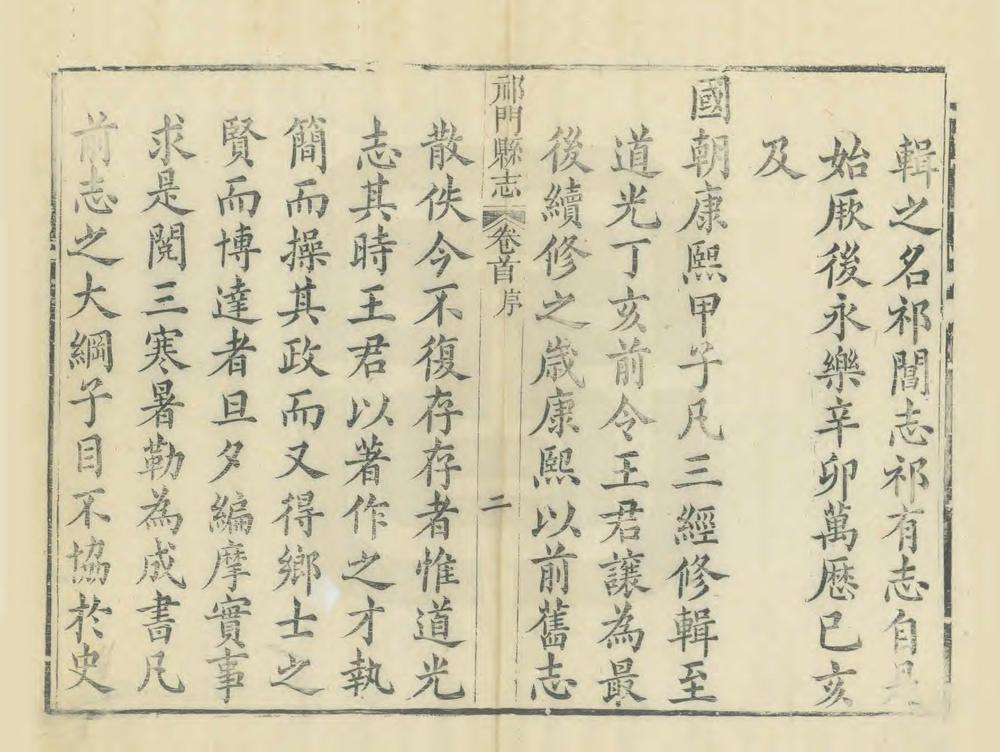 輯之名祁閶志祁有志自是
始厥後永樂辛卯萬厯已亥
及
國朝康熙甲子凡三經修輯至
道光丁亥前令王君讓為最
後續修之歲康熙以前舊志
祁門縣志
卷首
序
二
散佚今不復存存者惟道光
志其時王君以著作之才執
簡而操其政而又得鄉士之
賢而博達者旦夕編摩實事
求是閱三寒暑勒為成書凡
前志之大綱子目不協於史